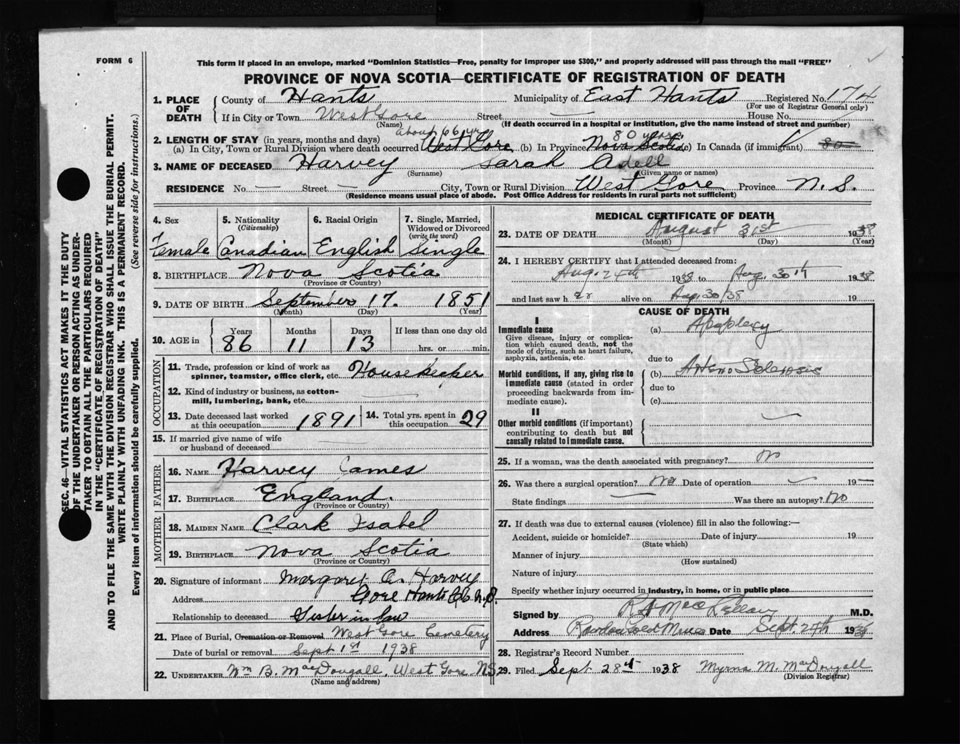 FORM 6
This form if placed in an envelope, marked "Dominion Statistics—Free, penalty for improper use $300," and properly addressed will pass through the mail "FREE"
PROVINCE OF NOVA SCOTIA—CERTIFICATE OF REGISTRATION OF DEATH
SEC. 46—VITAL STATISTICS ACT MAKES IT THE DUTY
OF THE UNDERTAKER OR PERSON ACTING AS UNDER-
TAKER TO OBTAIN ALL THE PARTICULARS REQUIRED
IN THE "CERTIFICATE OF REGISTRATION OF DEATH"
AND TO FILE THE SAME WITH THE DIVISION REGISTRAR WHO SHALL ISSUE THE BURIAL PERMIT.
WRITE PLAINLY WITH UNFADING INK. THIS IS A PERMANENT RECORD.
Every item of information should be carefully supplied. (See reverse side for instructions.)
1. PLACE OF DEATH County of Hants Municipality of East Hants Registered No. 174
(For use of Registrar General only)
If in City or Town West Gore Street House No.
(Name) (If death occurred in a hospital or institution, give the name instead of street and number)
about 66 yrs 80 years
2. LENGTH OF STAY (in years, months and days)
(a) In City, Town or Rural Division where death occurred West Gore (b) In Province Nova Scotia (c) In Canada (if immigrant)
3. NAME OF DECEASED Harvey Sarah Adell
(Surname) (Given name or names)
RESIDENCE No. — Street — City, Town or Rural Division West Gore Province N. S.
(Residence means usual place of abode. Post Office Address for residents in rural parts not sufficient)
4. Sex 5. Nationality (Citizenship) 6. Racial Origin 7. Single, Married, Widowed or Divorced (write the word)
Female Canadian English Single
8. BIRTHPLACE Nova Scotia
(Province or Country)
9. DATE OF BIRTH September 17. 1851
(Month) (Day) (Year)
10. AGE in Years Months Days If less than one day old
86 11 13 hrs. or min.
OCCUPATION
11. Trade, profession or kind of work as spinner, teamster, office clerk, etc. Housekeeper
12. Kind of industry or business, as cotton-mill, lumbering, bank, etc. —
13. Date deceased last worked at this occupation 1891 14. Total yrs. spent in this occupation 29
15. If married give name of wife or husband of deceased
FATHER
16. NAME Harvey James
17. BIRTHPLACE England.
(Province or Country)
MOTHER
18. MAIDEN NAME Clark Isabel
19. BIRTHPLACE Nova Scotia
(Province or Country)
20. Signature of informant Margaret A. Harvey
Address Gore Hants Co. N.S.
Relationship to deceased Sister in law
21. Place of Burial, Cremation or Removal West Gore Cemetery
Date of burial or removal Sept 1st 1938
22. UNDERTAKER Wm B. MacDougall, West Gore, NS
(Name and address)
MEDICAL CERTIFICATE OF DEATH
23. DATE OF DEATH August 31st 1938
(Month) (Day) (Year)
24. I HEREBY CERTIFY that I attended deceased from:
Aug. 24th 1938 to Aug. 30th 1938
and last saw h er alive on Aug 30/38 19
CAUSE OF DEATH
I
Immediate cause
Give disease, injury or complication which caused death, not the mode of dying, such as heart failure, asphyxia, asthenia, etc.
(a) Apoplexy
due to
Morbid conditions, if any, giving rise to immediate cause (stated in order proceeding backwards from immediate cause).
(b) Arterio Sclerosis
due to
(c)
II
Other morbid conditions (if important) contributing to death but not causally related to immediate cause.
25. If a woman, was the death associated with pregnancy? No
26. Was there a surgical operation? No Date of operation — 19 —
State findings — Was there an autopsy? No
27. If death was due to external causes (violence) fill in also the following:—
Accident, suicide or homicide? Date of injury 19
(State which)
Manner of injury
(How sustained)
Nature of injury
Specify whether injury occurred in Industry, in home, or in public place
Signed by M.D.
Address Rawdon Gold Mines Date Sept. 27th 1938
28. Registrar's Record Number
29. Filed Sept 28th 1938 Myrna M. MacDougall
(Division Registrar)